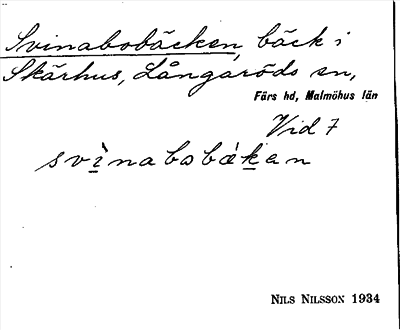 Svinabobäcken, bäck i
Skärhus, Långaröds sn,
Färs hd, Malmöhus län
Vid 7
svìnabobàkan
NILS NILSSON 1934